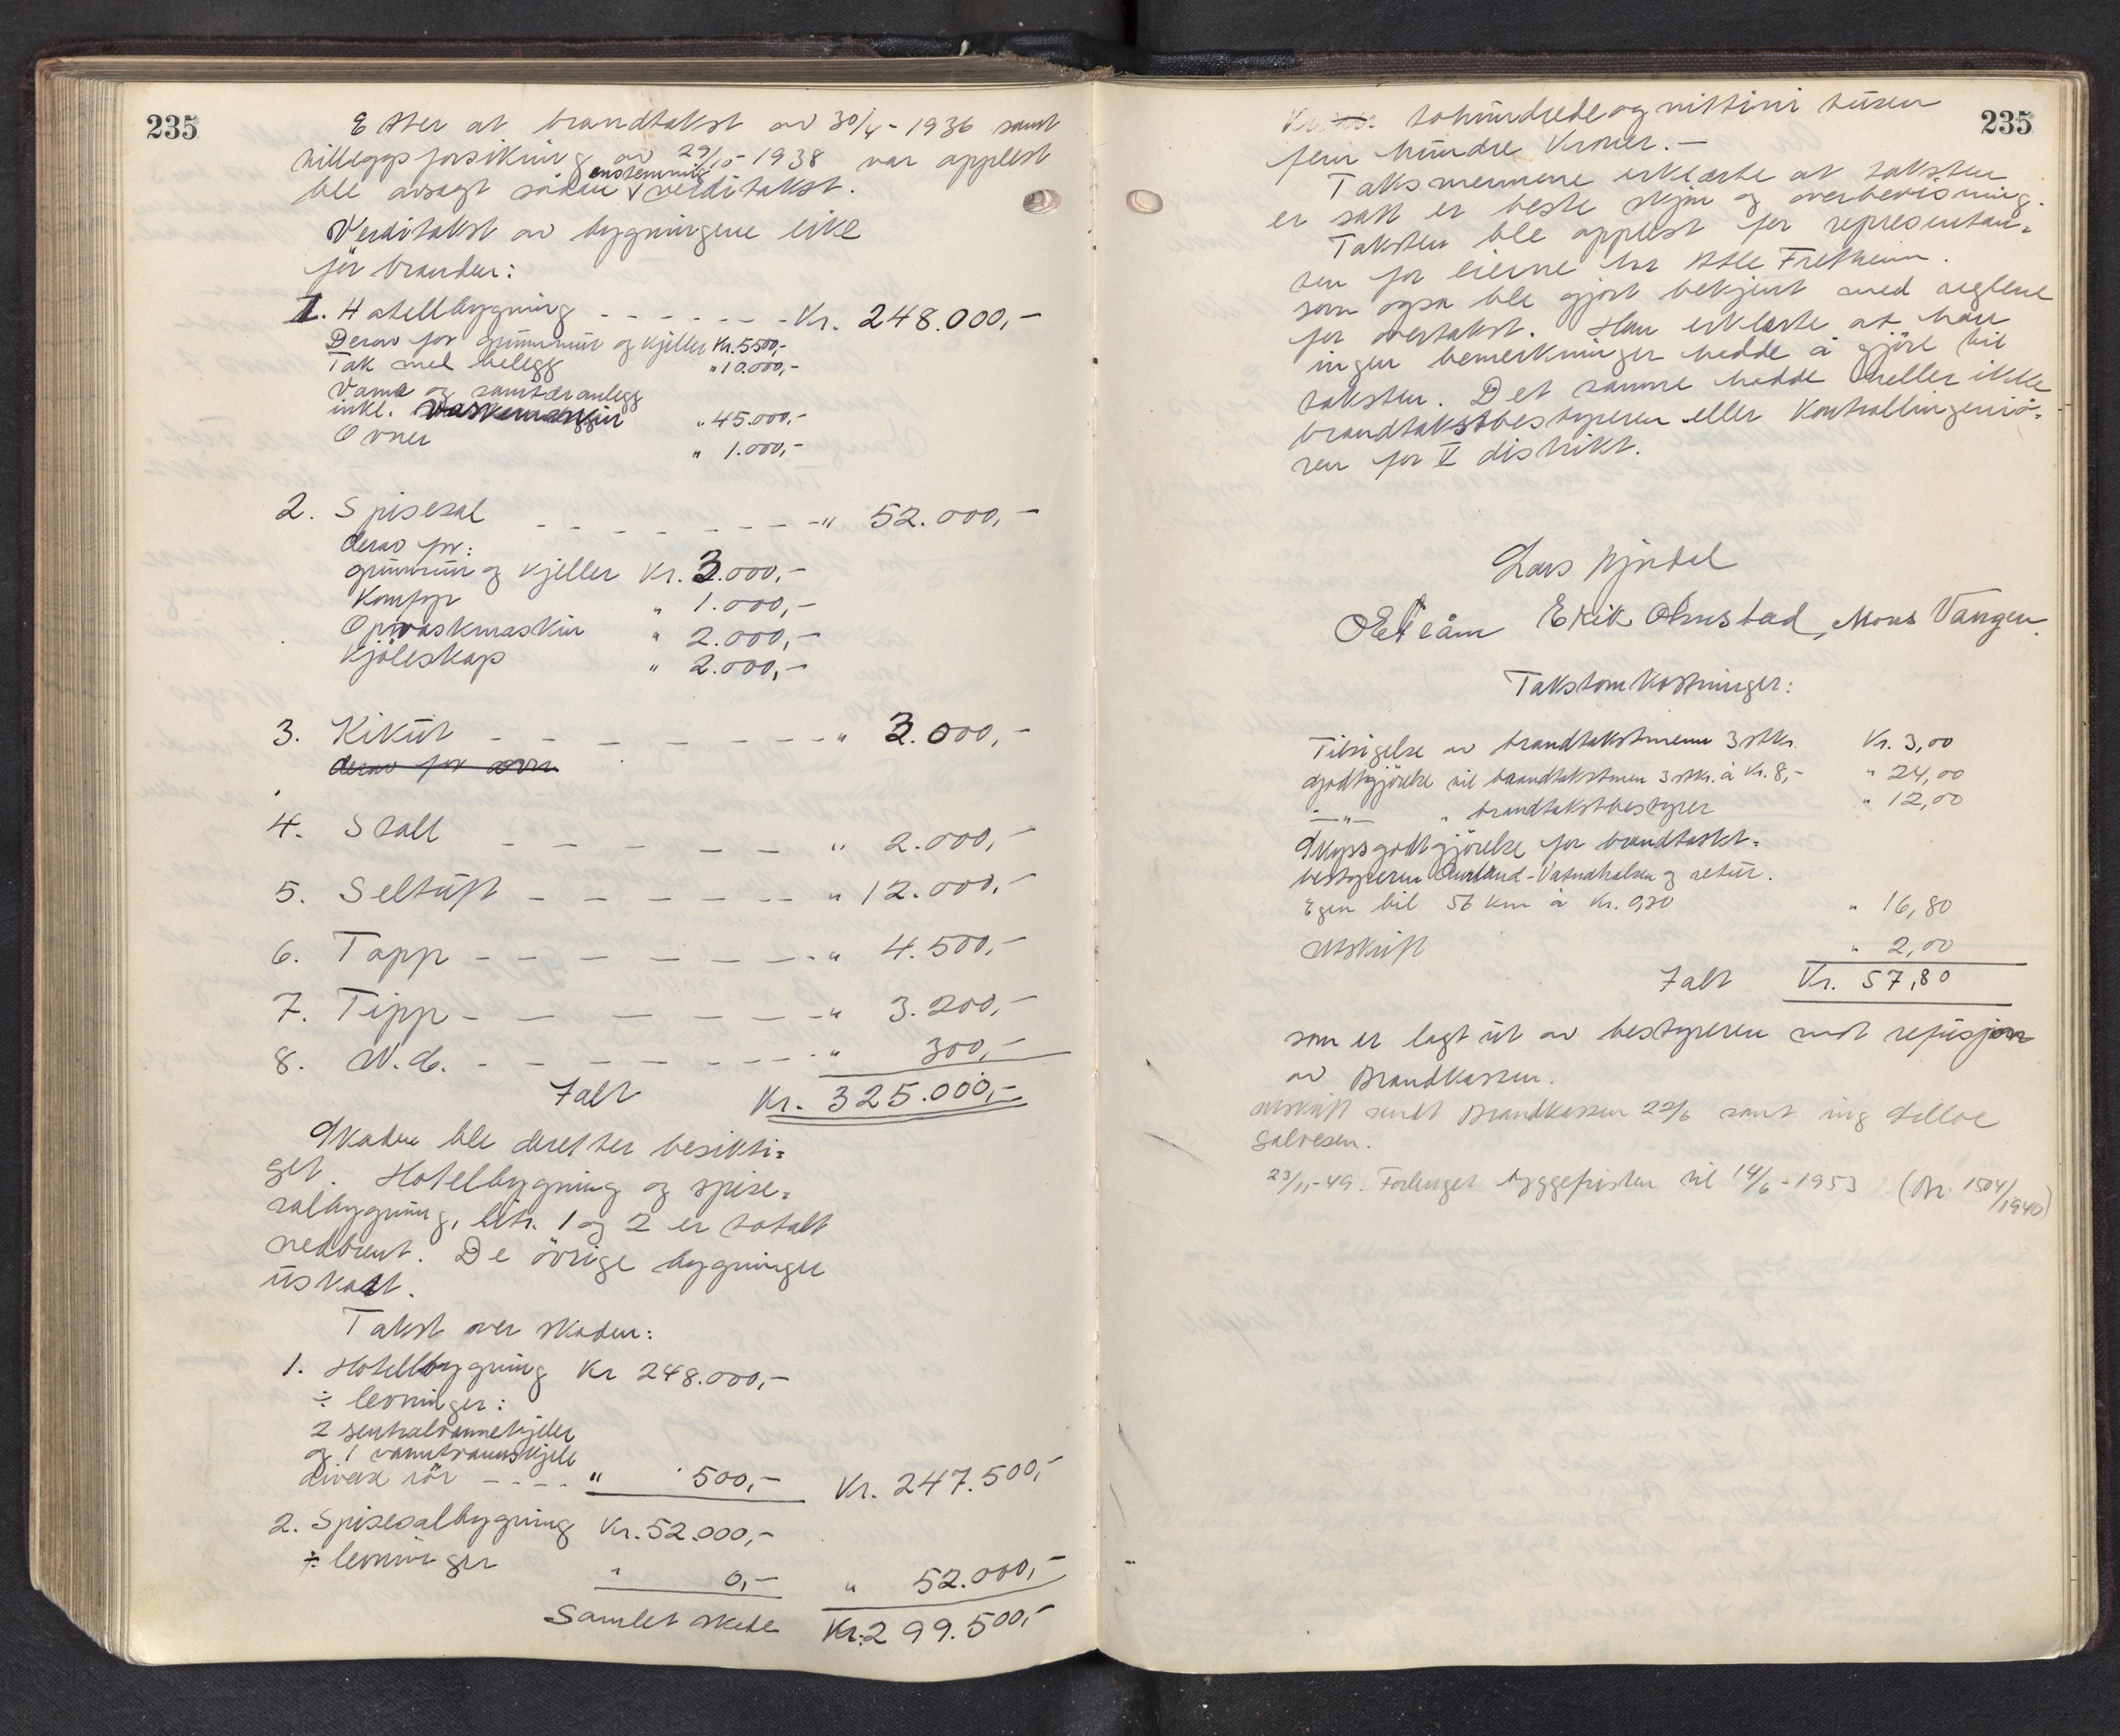 235
Etter at brandtakst av 30/4-1936 samt
tilleggsforsikring av 29/10-1938 var opplest
ble avsagt sådan enstemmig verditakst.
Verditakst av bygningene like
før branden:
1. Hotellbygning - - - - - - Kr. 248.000,-
Derav for grunnmur og kjeller Kr. 5500,-
Tak med belegg " 10.000,-
Varme og sanitæranlegg
inkl. Vaskemaskin " 45.000,-
Ovner " 1.000,-
2. Spisesal - - - - - - - " 52.000,-
derav for:
grunnmur og kjeller Kr. 3.000,-
Komfyr " 1.000,-
Opvaskmaskin " 2.000,-
Kjøleskap " 2.000,-
3. Kikut - - - - - - - " 3.000,-
derav for ovn
4. Stall - - - - - - " 2.000,-
5. Seltuft - - - - - - " 12.000,-
6. Topp - - - - - - - " 4.500,-
7. Tipp - - - - - - - " 3.200,-
8. W.C. - - - - - - - " 300,-
Ialt Kr. 325.000,-
Skaden ble deretter besikti=
get. Hotelbygning og spise=
salbygning, litr. 1 og 2 er totalt
nedbrent. De övrige bygninger
uskadt.
Takst over skaden:
1. Hotellbygning Kr 248.000,-
÷ levninger:
2 sentralvarmekjeler
og 1 varmtvannskjele
diverse rör - - - - " 500,- Kr. 247.500,-
2. Spisesalbygning Kr. 52.000,-
÷ levninger " 0,- " 52.000,-
Samlet skade Kr. 299.500,-
235
tohundredeognittini tusen
fem hundre Kroner.-
Taksmennene erklærte at taksten
er satt er beste skjøn og overbevisning.
Taksten ble opplest for representan=
ten for eierne hr Atle Fretheim.
som også ble gjort bekjent med reglene
for overtakst. Han erklærte at han
ingen bemerkninger hadde å gjöre til
taksten. Det samme hadde heller ikke
brandtakstbestyreren eller Kontrollingeniö=
ren for V distrikt.
Lars
Erik Ohnstad, Mons Vangen.
Takstomkostninger:
Tilsigelse av brandtakstmenn 3 stkr. Kr. 3,00
Godtgjörelse til brandtakstmen 3 stkr. à Kr. 8,- " 24,00
- " - " brandtakstbestyrer " 12,00
Skyssgodtgjörelse for brandtakst=
bestyreren Aurland-Vatnahalsen og retur.
Egen bil 56 km à Kr. 0,30 " 16,80
Utskrift " 2,00
Ialt Kr. 57,80
som er lagt ut av bestyreren mot refusjon
av Brandkassen.
Utskrift sendt Brandkassen 22/6 samt ing
Salvesen.
23/11-49. Forlenget byggefristen til 14/6-1953 (Br. 1504/1940)